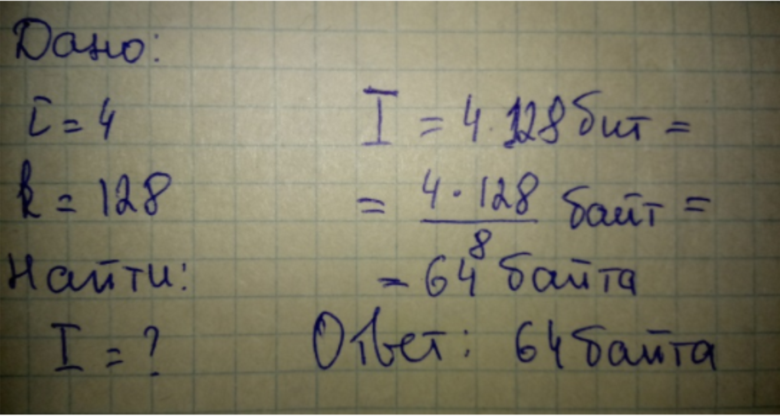 Дано:
i = 4
k = 128
Найти:
I = ?
I = 4·128 бит =
= 4·128/8 байт =
= 64 байта
Ответ: 64 байта